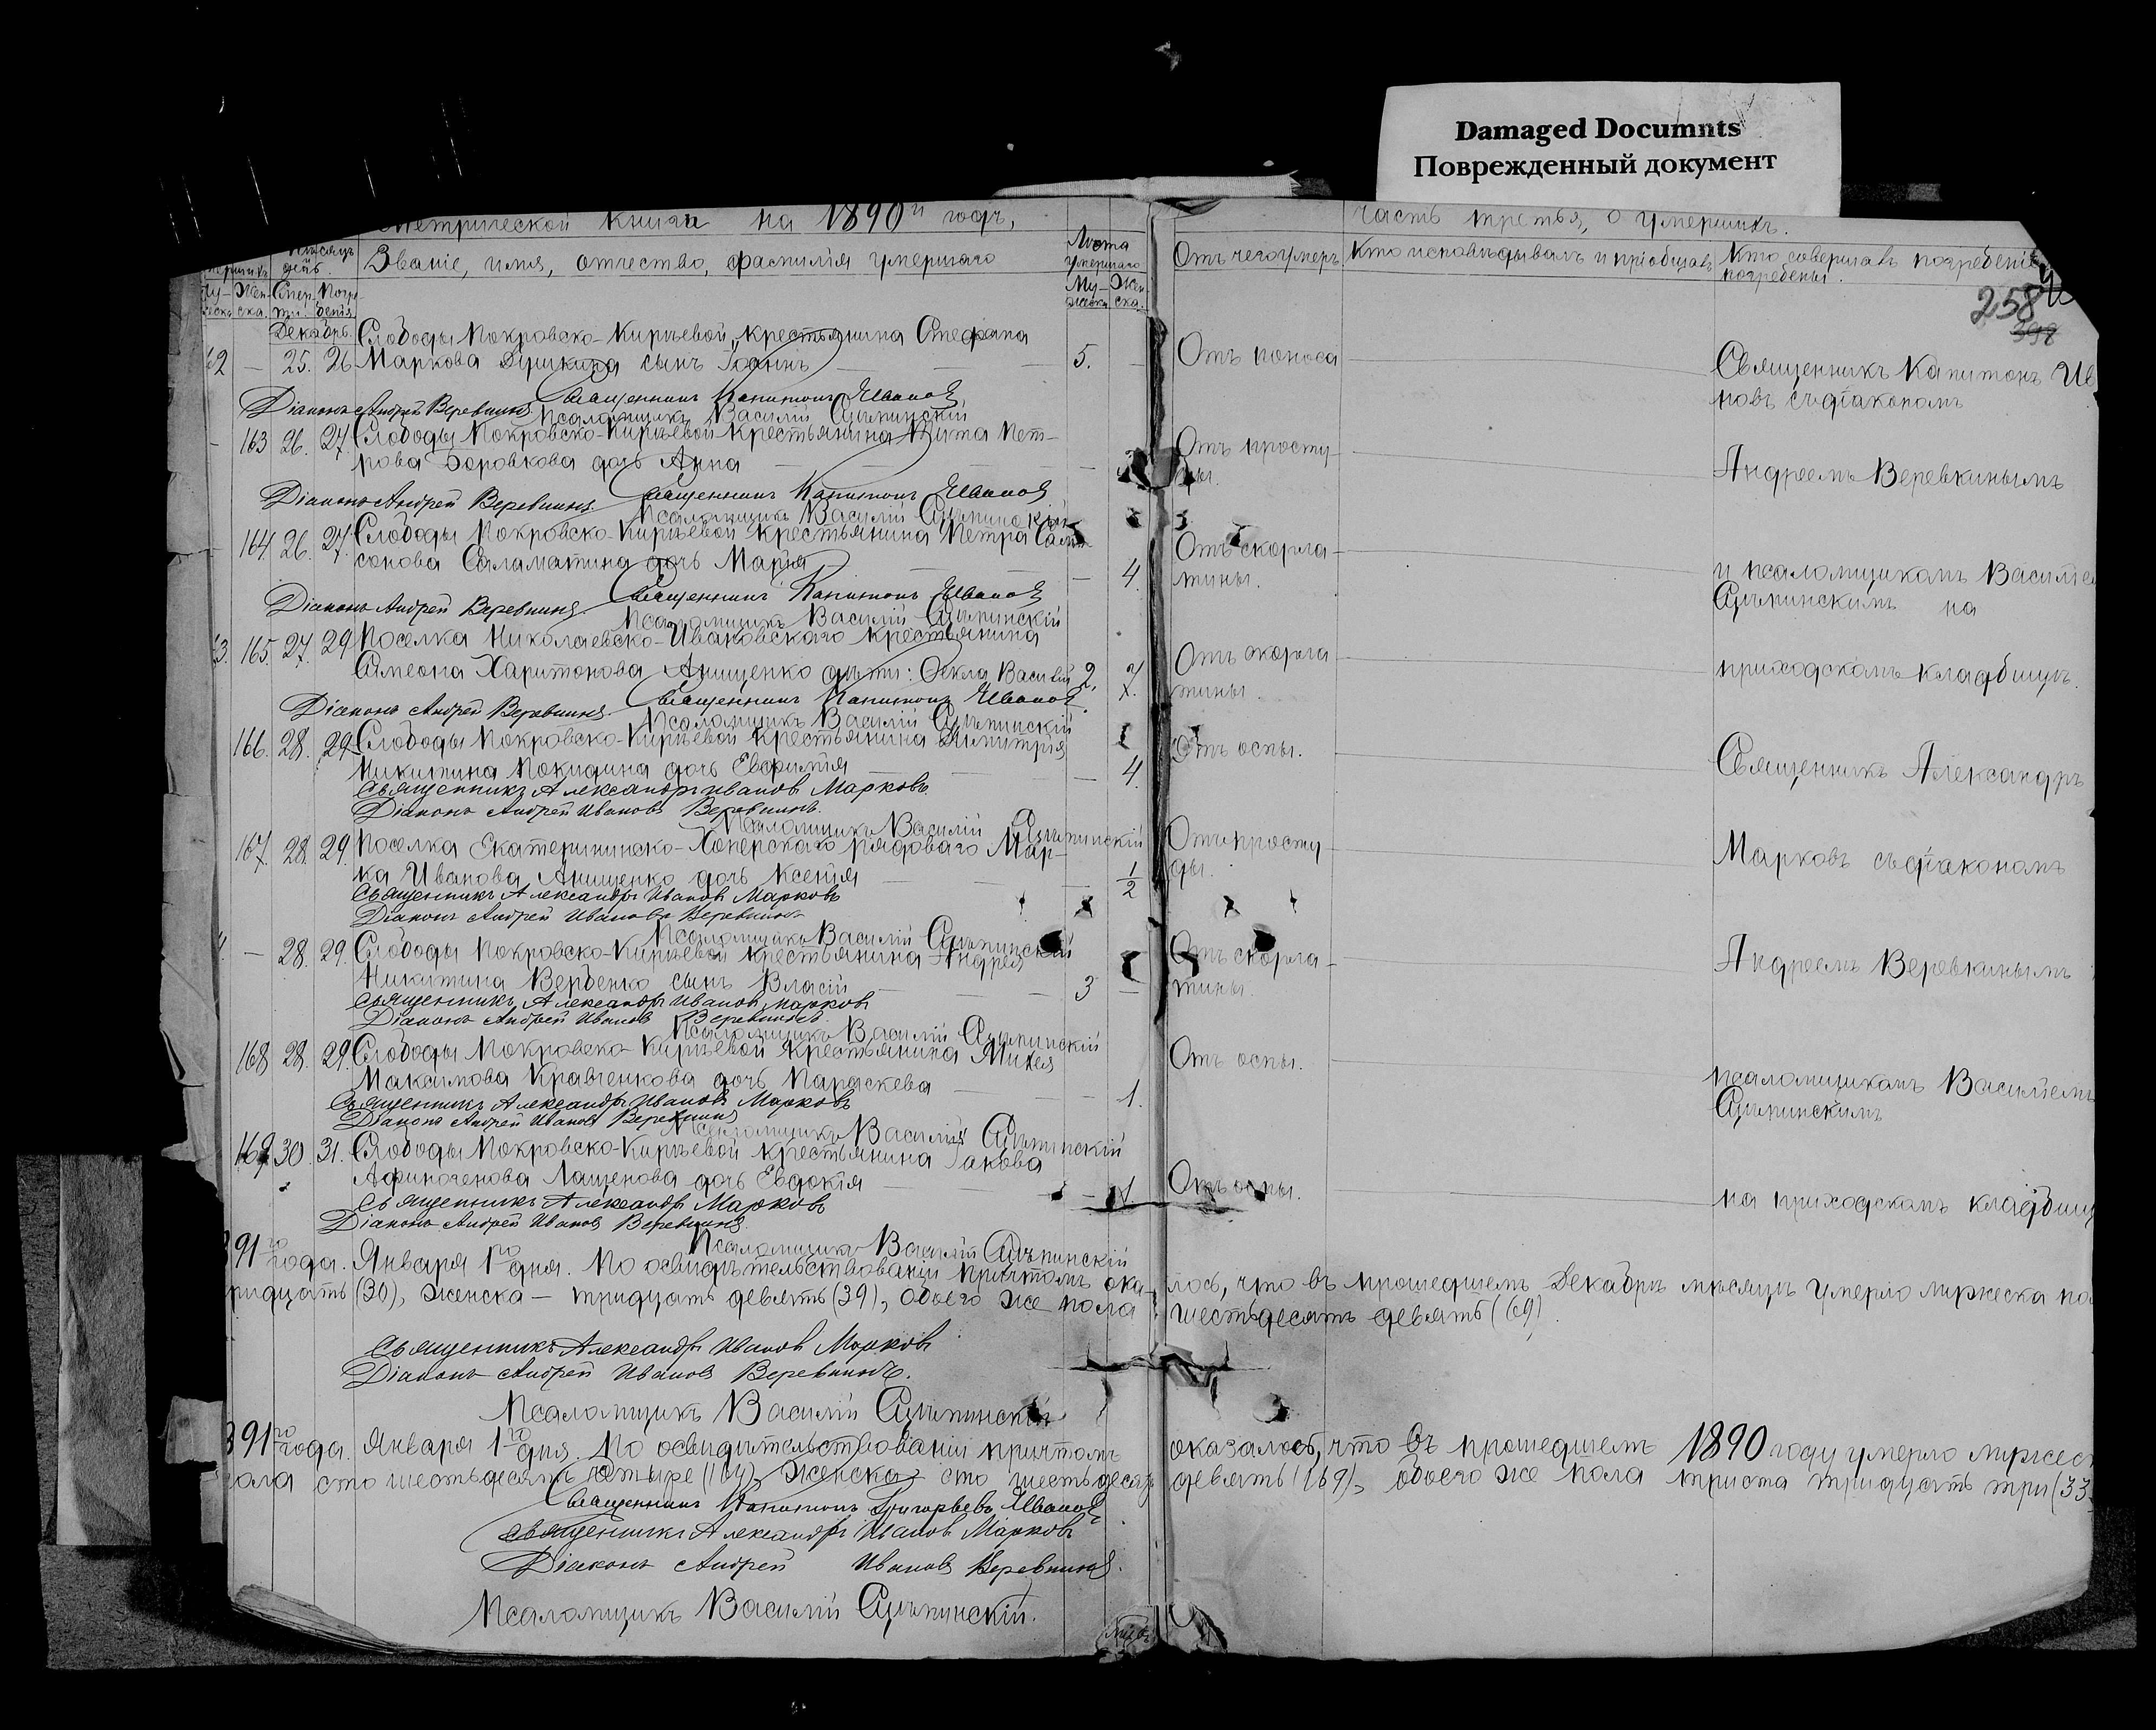 Damaged Documnts
Поврежденный документ
Метрической книги на 1890й годъ,
часть третья, о умершихъ.
Званіе, имя, отчество, фамилія умершаго
Лѣта умершаго
Отъ чего умеръ
Кто исповѣдывалъ и пріобщалъ
Кто совершалъ погребеніе
погребены.
258
Декабрь.
Слободы Покровско-Кирѣевой, крестьянина Стефана
62 — 25. 26 Маркова сынъ Іоаннъ 5. Отъ поноса
Священникъ Капитонъ Ив
новъ съ діакономъ
Священникъ Капитонъ Ивановъ
Діаконъ Андрей Веревкинъ
Псаломщикъ Василій
— 163 26. 27. Слободы Покровско-Кирѣевой крестьянина Тита Пет-
рова Боровкова дочь Анна
Отъ просту-
ды.
Андреемъ Веревкинымъ
Діаконъ Андрей Веревкинъ Священникъ Капитонъ Ивановъ
Псаломщикъ Василій
164. 26. 27. Слободы Покровско-Кирѣевой крестьянина Петра Сам-
сонова Саламатина дочь Марія — 4.
Отъ скорла-
тины.
и псаломщикомъ Василіе
на
Священникъ Капитонъ Ивановъ
Діаконъ Андрей Веревкинъ
Псаломщикъ Василій
3. 165. 27. 29 Поселка Николаевско-Ивановскаго крестьянина
Симеона Харитонова Анищенко дѣти: Ѳекла Василій 2. 7.
Отъ скорла
тины.
приходскомъ кладбищѣ.
Діаконъ Андрей Веревкинъ Священникъ Капитонъ Ивановъ
Псаломщикъ Василій
166. 28. 29. Слободы Покровско-Кирѣевой крестьянина Димитрія
Никитина Покидина дочь Евфимія — 4.
Отъ оспы.
Священникъ Александръ
Священникъ Александръ Ивановъ Марковъ.
Діаконъ Андрей Ивановъ Веревкинъ.
Псаломщикъ Василій
167. 28. 29. Поселка Екатерининско-Хоперскаго рядоваго Мар-
ка Иванова Анищенко дочь Ксенія — 1/2
Отъ просту-
ды.
Марковъ съ діакономъ
Священникъ Александръ Ивановъ Марковъ
Діаконъ Андрей Ивановъ Веревкинъ
Псаломщикъ Василій
— 28. 29. Слободы Покровско-Кирѣевой крестьянина Андрея
Никитина Вербенко сынъ Власій 3 —
Отъ скорла-
тины.
Андреемъ Веревкинымъ
Священникъ Александръ Ивановъ Марковъ
Діаконъ Андрей Ивановъ Веревкинъ
Псаломщикъ Василій
168 28. 29. Слободы Покровско-Кирѣевой крестьянина Михея
Максимова Кравченкова дочь Параскева — 1.
Отъ оспы.
псаломщикомъ Василіемъ
Священникъ Александръ Ивановъ Марковъ
Діаконъ Андрей Ивановъ Веревкинъ
Псаломщикъ Василій
169 30. 31. Слободы Покровско-Кирѣевой крестьянина Іакова
Афиногенова Лащенова дочь Евдокія — 1
Отъ оспы.
на приходскомъ кладбищ
Священникъ Александръ Марковъ
Діаконъ Андрей Ивановъ Веревкинъ.
Псаломщикъ Василій
891го года. Января 1го дня. По освидѣтельствованіи причтомъ ока-
лось, что въ прошедшемъ Декабрѣ мѣсяцѣ умерло мужеска по
ридцать (30), женска — тридцать девять (39), обоего же пола
шестьдесятъ девять (69).
Священникъ Александръ Ивановъ Марковъ
Діаконъ Андрей Ивановъ Веревкинъ.
Псаломщикъ Василій
891го года. Января 1го дня. По освидѣтельствованіи причтомъ
оказалось, что въ прошедшемъ 1890 году умерло мужес
ола сто шестьдесятъ четыре (164), женска — сто шестьдесятъ
девять (169), обоего же пола триста тридцать три (33
Священникъ Капитонъ Григорьевъ Ивановъ
Священникъ Александръ Ивановъ Марковъ
Діаконъ Андрей Ивановъ Веревкинъ.
Псаломщикъ Василій